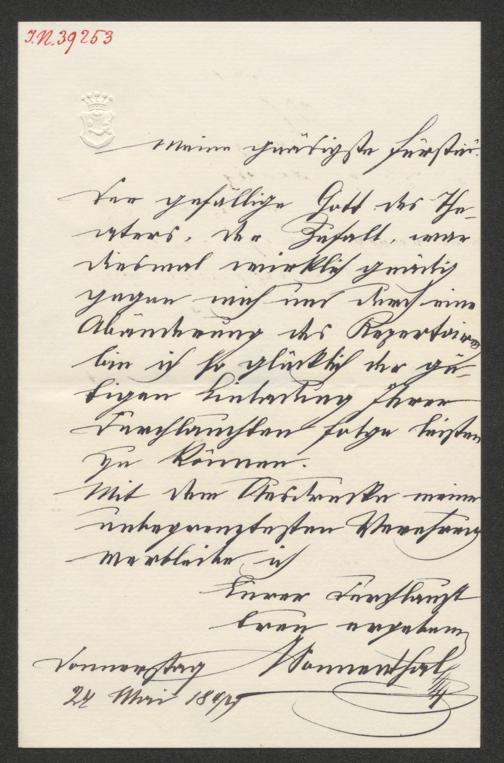 I.N. 39253
Meine gnädigste Fürstin!
Der gefällige Gott des The-
aters, der Zufall, war
diesmal wirklich gnädig
gegen mich und durch eine
Abänderung des Repertoires
bin ich so glücklich der gü-
tigen Einladung Ihrer
Durchlauchten folge leisten
zu können.
Mit dem Ausdrucke meiner
unbegrenztesten Verehrung
verbleibe ich
Eurer Durchlaucht
treu ergebener
Donnerstag Sonnenthal
24 Mai